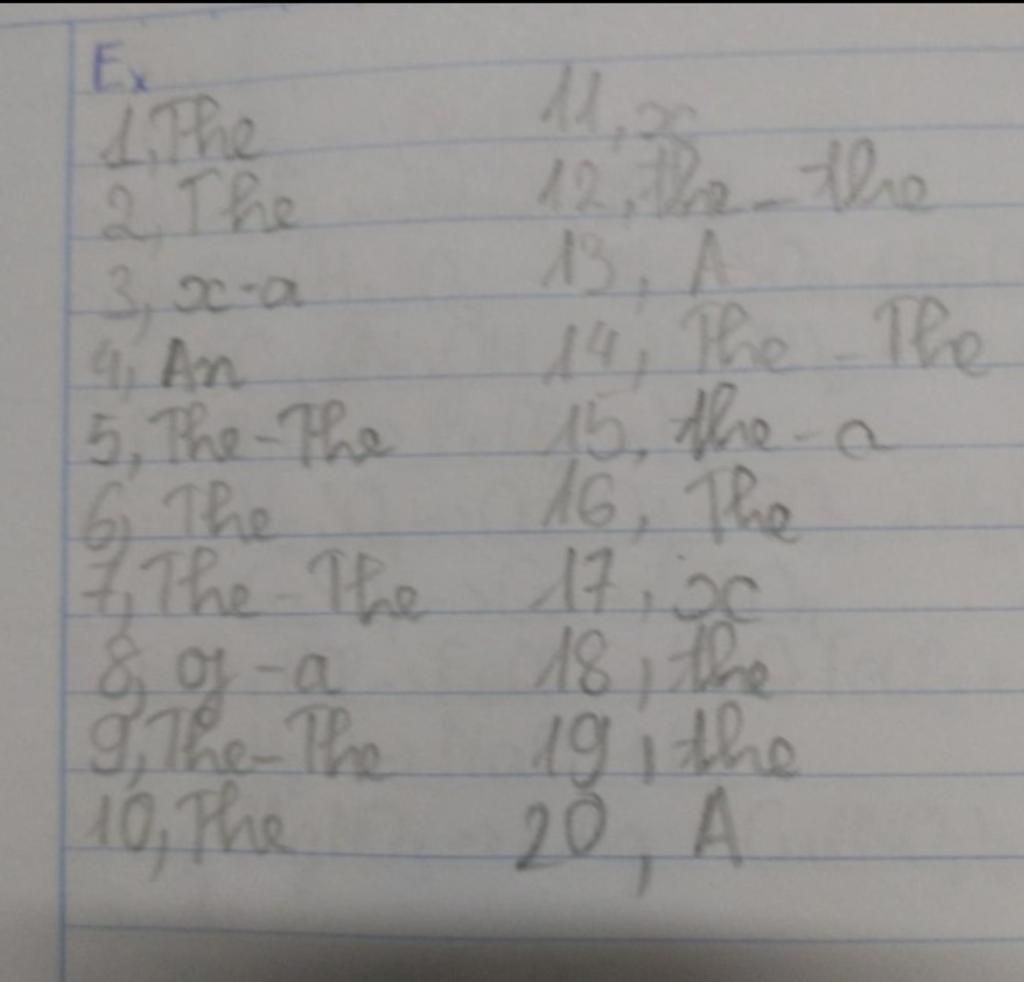 Ex
1, The
2, The
3, x-a
4, An
5, The-The
6, The
7, The-The
8, a-a
9, The-The
10, The
11, x
12, the-the
13, A
14, The-The
15, the-a
16, The
17, x
18, the
19, the
20, A